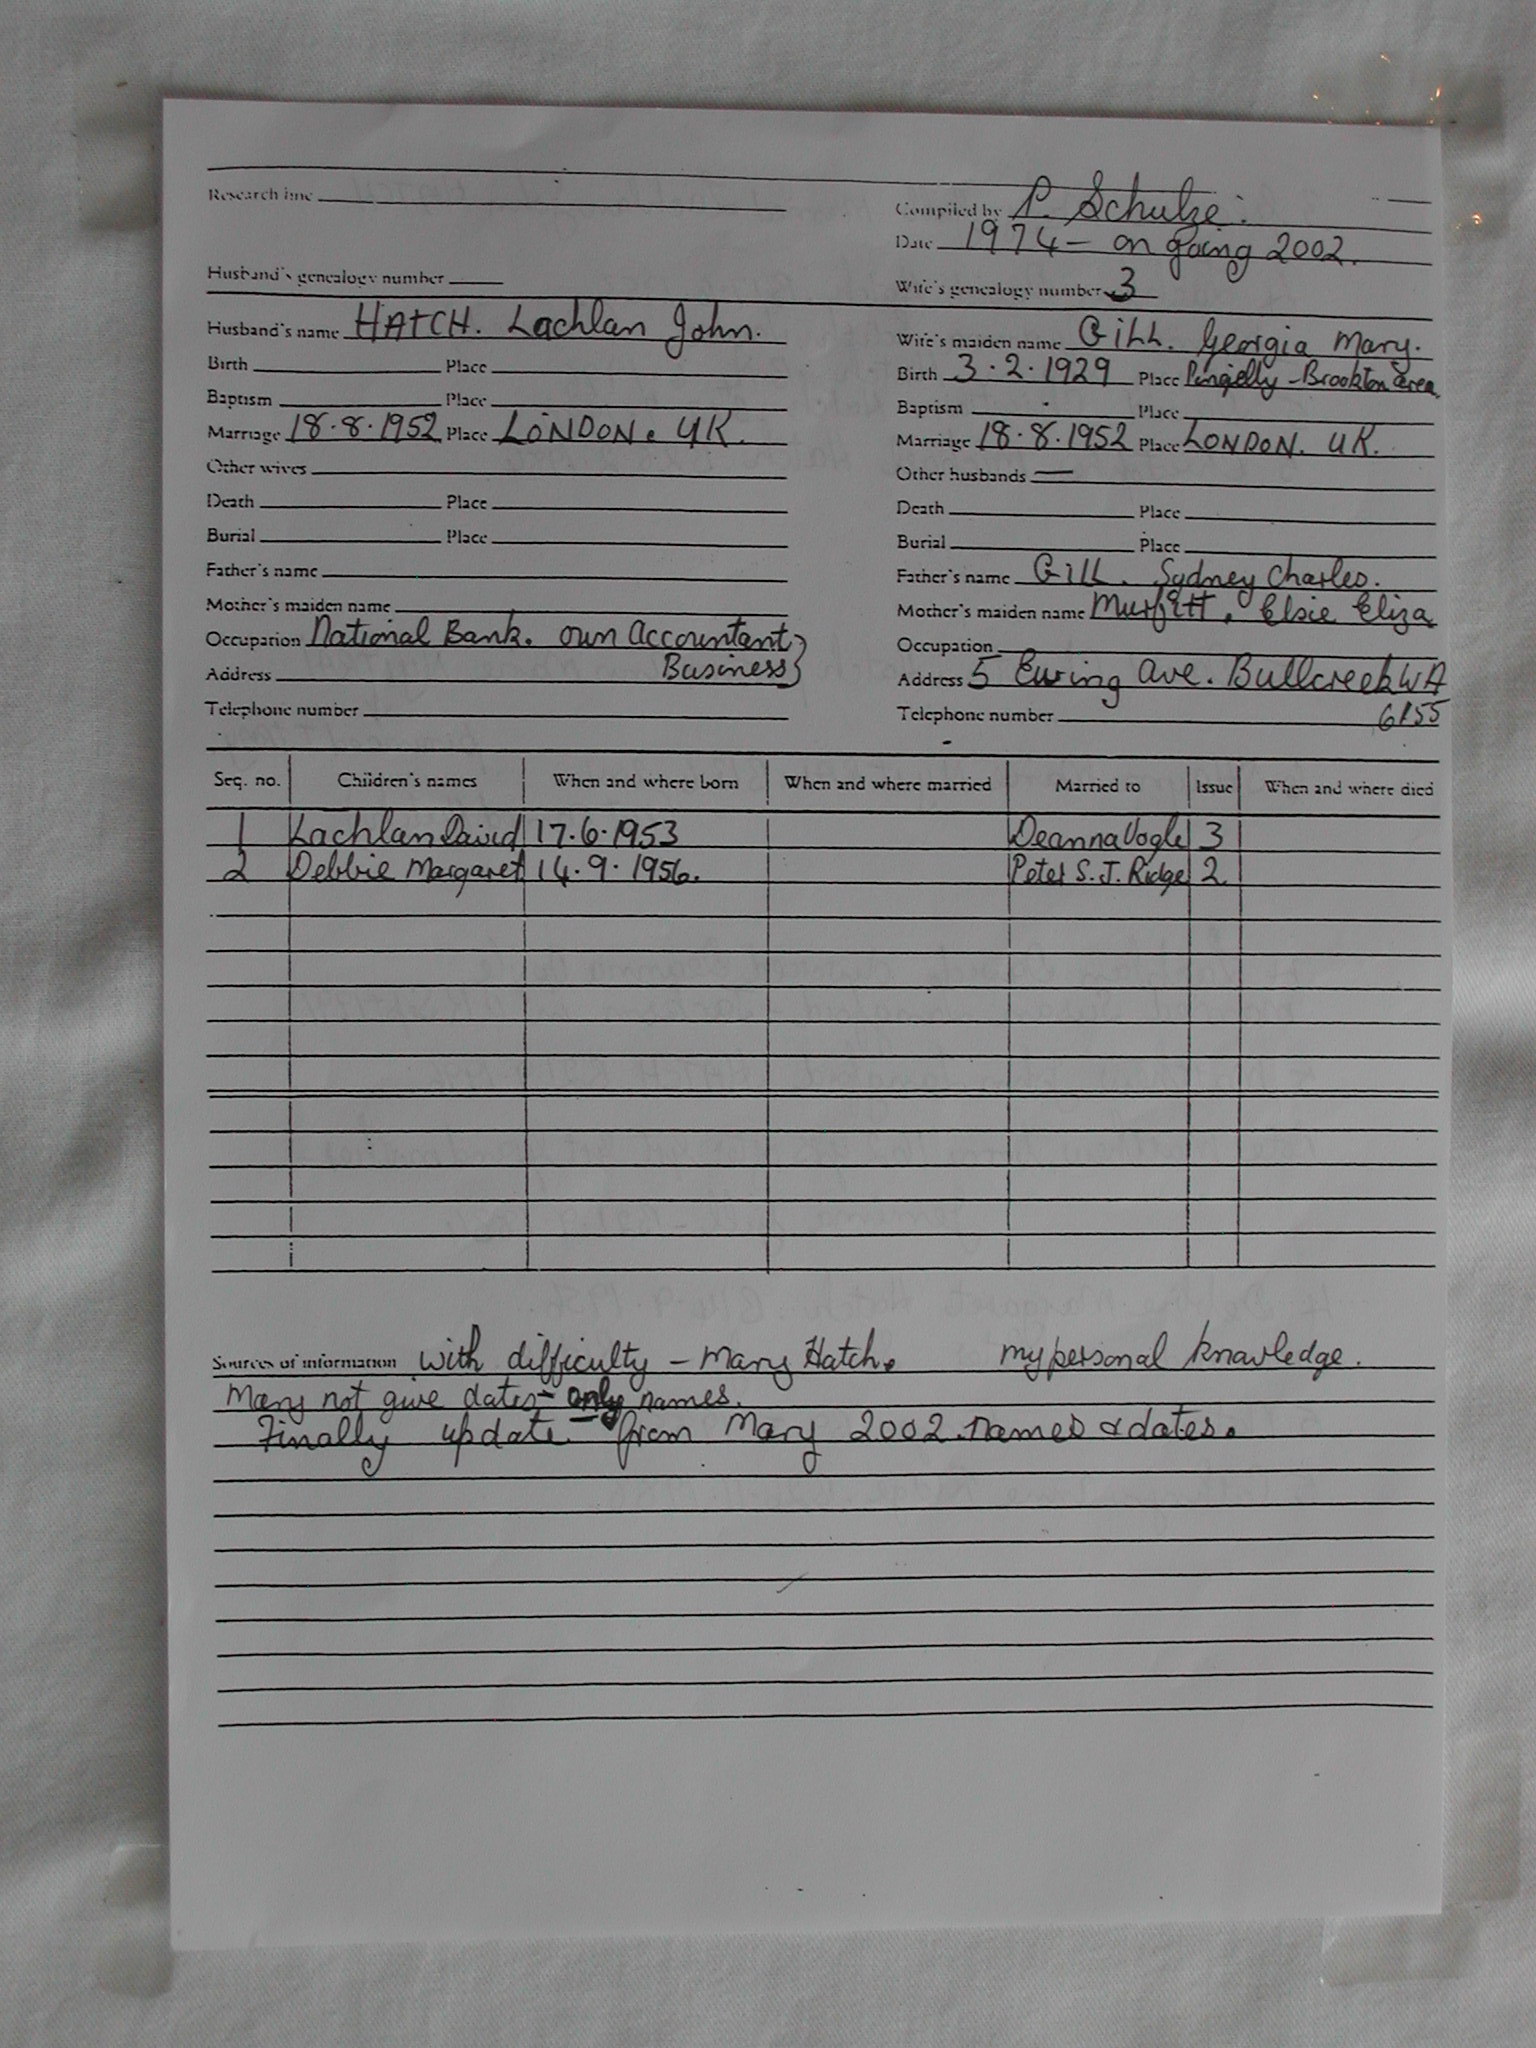 Research line
Compiled by P. Schulze.
Date 1974 - on going 2002.
Husband's genealogy number
Wife's genealogy number 3
Husband's name HATCH. Lachlan John.
Wife's maiden name GILL. Georgia Mary.
Birth Place
Birth 3.2.1929 Place Pingelly - Brookton area
Baptism Place
Baptism Place
Marriage 18.8.1952 Place LONDON. UK.
Marriage 18.8.1952 Place LONDON. UK.
Other wives
Other husbands —
Death Place
Death Place
Burial Place
Burial Place
Father's name
Father's name Gill. Sydney Charles.
Mother's maiden name
Mother's maiden name Murfitt, Elsie Eliza
Occupation National Bank. own Accountant
Business
Occupation
Address
Address 5 Ewing Ave. Bullcreek WA
6155
Telephone number
Telephone number
Seq. no. Children's names When and where born When and where married Married to Issue When and where died
1 Lachlan David 17.6.1953 Deanna Vogle 3
2 Debbie Margaret 14.9.1956. Peter S. J. Ridge 2
Sources of information with difficulty - Mary Hatch. my personal knowledge.
Mary not give dates - only names.
Finally update - from Mary 2002. names & dates.